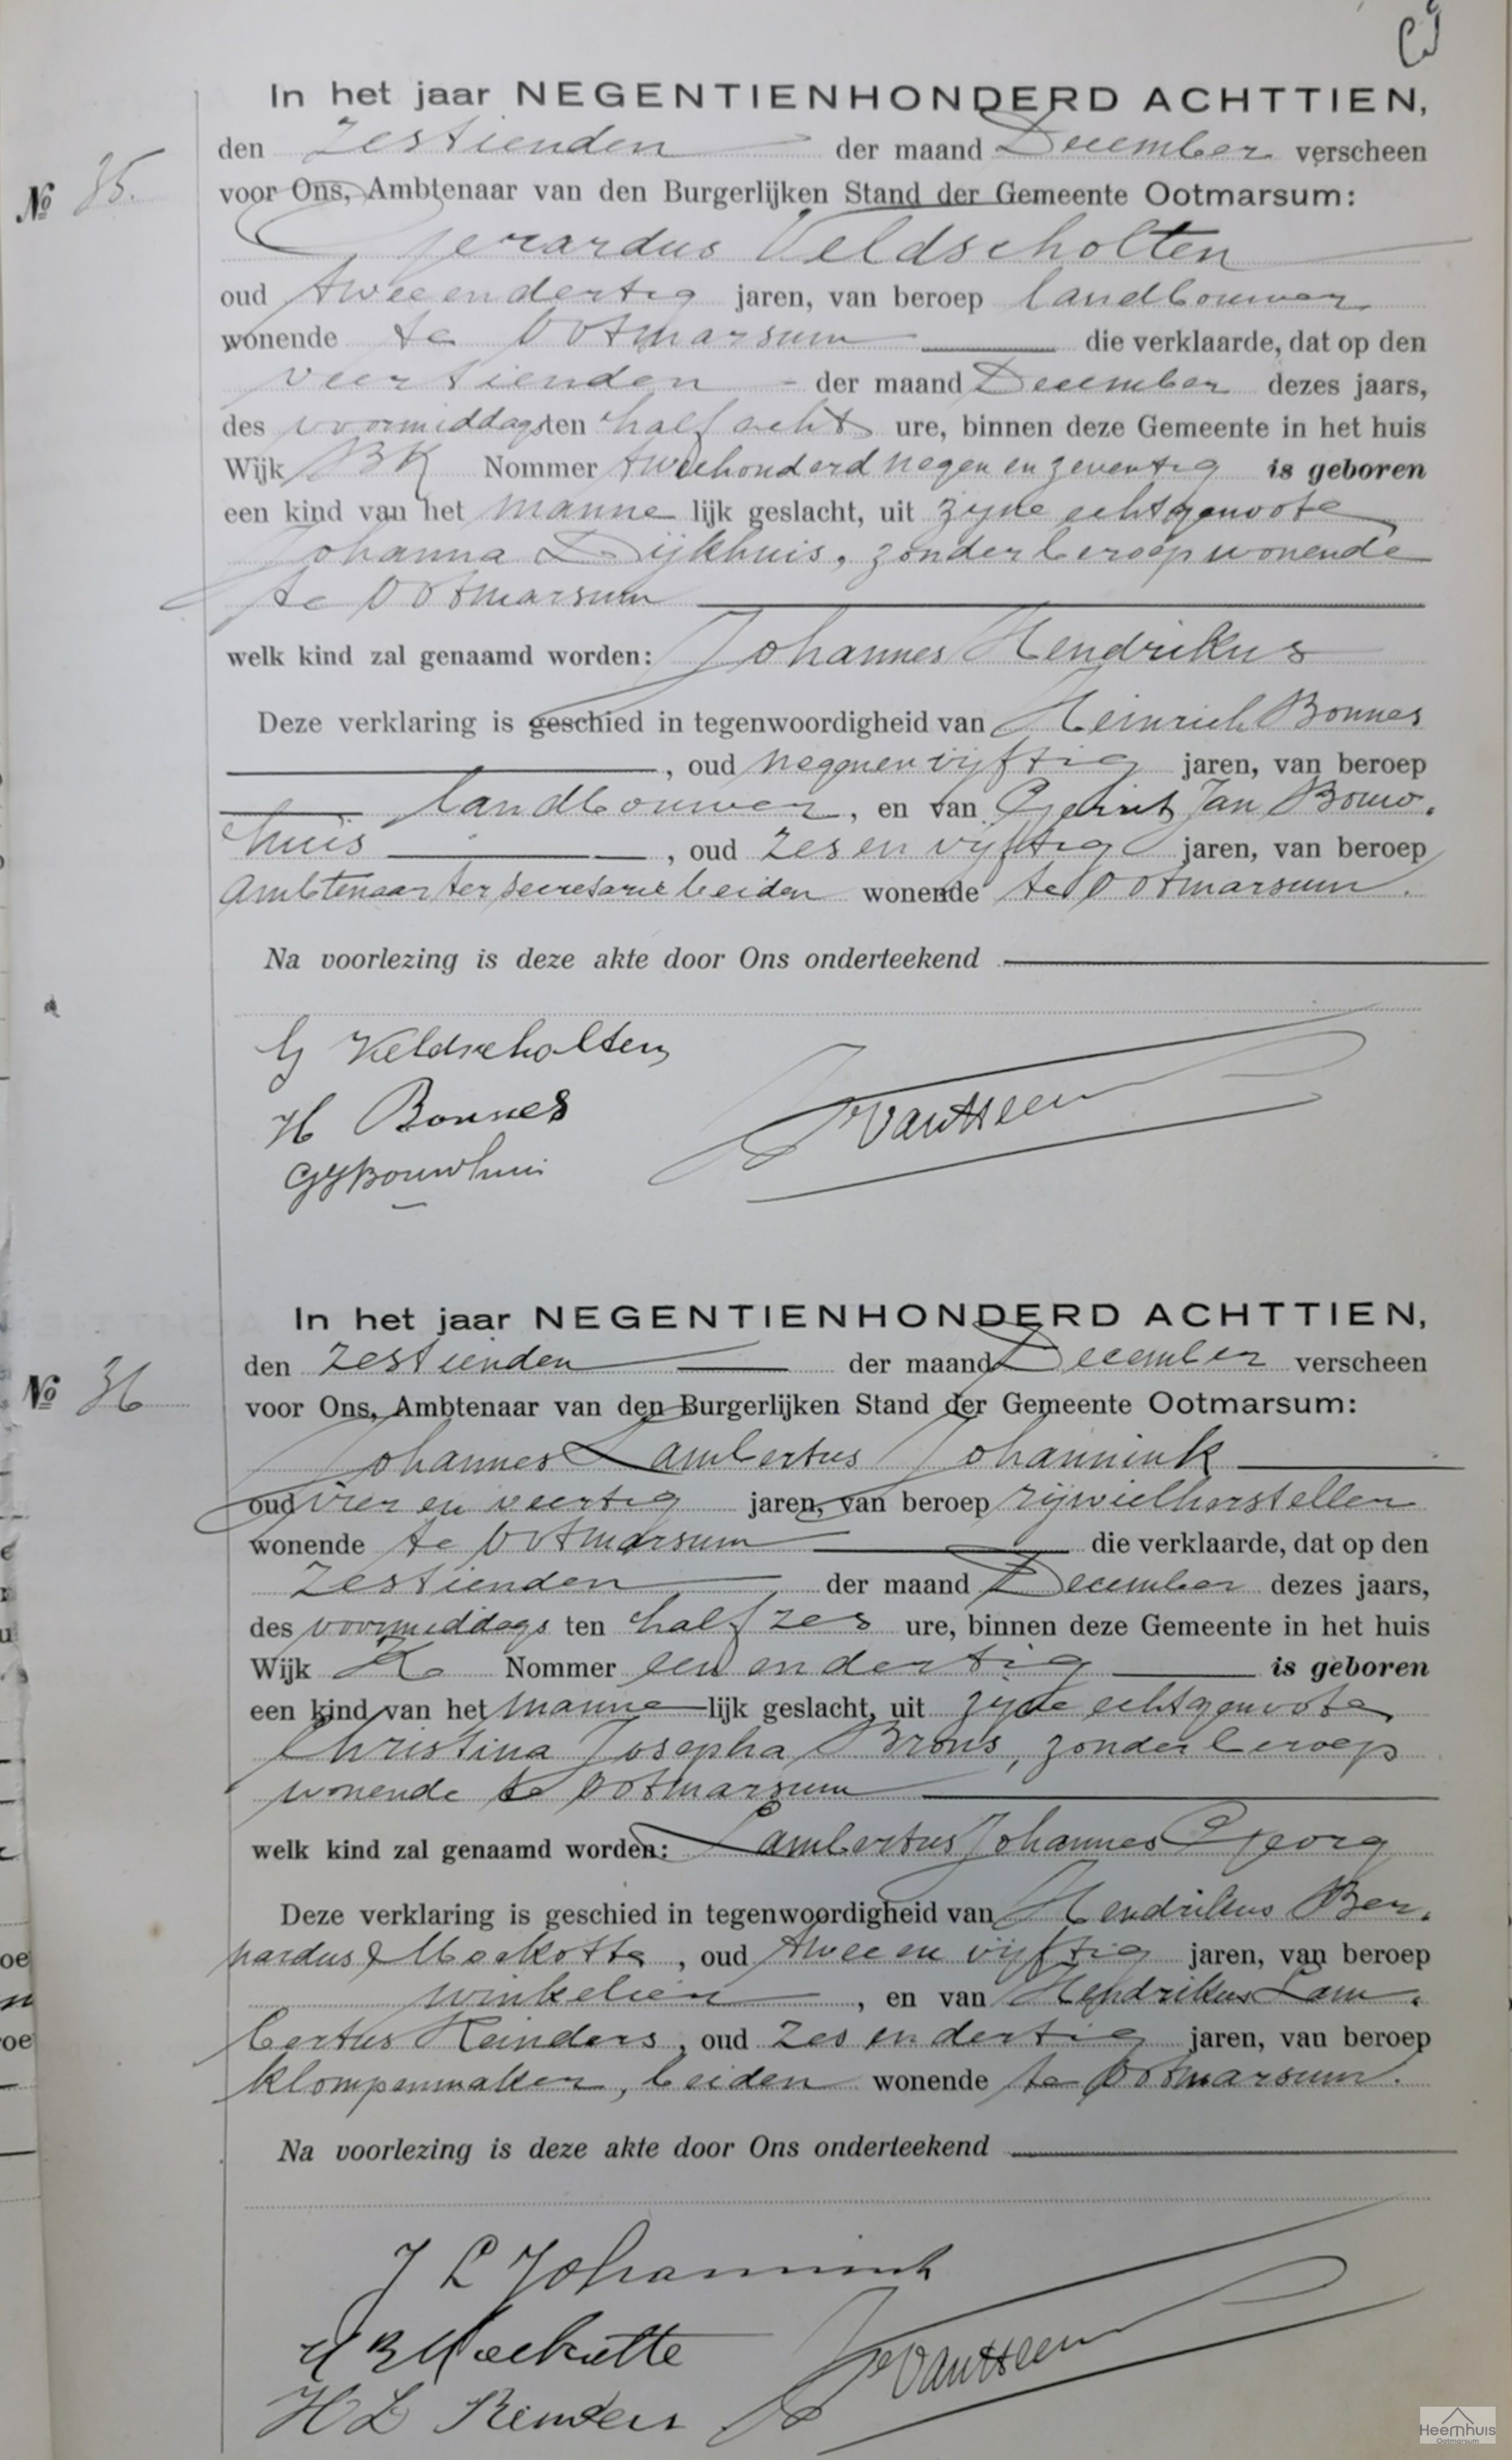 In het jaar NEGENTIENHONDERD ACHTTIEN,
den zestienden der maand December verscheen
No 35.
voor Ons, Ambtenaar van den Burgerlijken Stand der Gemeente Ootmarsum:
Gerardus Veldscholten
oud tweeendertig jaren, van beroep landbouwer
wonende te Ootmarsum die verklaarde, dat op den
veertienden der maand December dezes jaars,
des voormiddags ten half acht ure, binnen deze Gemeente in het huis
Wijk BK Nommer tweehonderd negen en zeventig is geboren
een kind van het manne lijk geslacht, uit zijne echtgenoote
Johanna Dijkhuis, zonder beroep wonende
te Ootmarsum
welk kind zal genaamd worden: Johannes Hendrikus
Deze verklaring is geschied in tegenwoordigheid van Heinrich Bonnes
, oud negenenvijftig jaren, van beroep
landbouwer, en van Gerrit Jan Bouw-
huis , oud zes en vijftig jaren, van beroep
Ambtenaar ter secretarie beiden wonende te Ootmarsum.
Na voorlezing is deze akte door Ons onderteekend
G Veldscholten
H Bonnes
GJ Bouwhuis
In het jaar NEGENTIENHONDERD ACHTTIEN,
den zestienden der maand December verscheen
No 36
voor Ons, Ambtenaar van den Burgerlijken Stand der Gemeente Ootmarsum:
Johannes Lambertus Johannink
oud vier en veertig jaren, van beroep rijwielhersteller
wonende te Ootmarsum die verklaarde, dat op den
zestienden der maand December dezes jaars,
des voormiddags ten half zes ure, binnen deze Gemeente in het huis
Wijk K Nommer een en dertig is geboren
een kind van het manne lijk geslacht, uit zijne echtgenoote
Christina Josepha Brons, zonder beroep
wonende te Ootmarsum
welk kind zal genaamd worden: Lambertus Johannes Georg
Deze verklaring is geschied in tegenwoordigheid van Hendrikus Ber-
nardus Mockotte, oud twee en vijftig jaren, van beroep
winkelier, en van Hendrikus Lam-
bertus Reinders, oud zes en dertig jaren, van beroep
klompenmaker, beiden wonende te Ootmarsum.
Na voorlezing is deze akte door Ons onderteekend
J L Johannink
H B Mockotte
H L Reinders
Heemhuis
Ootmarsum